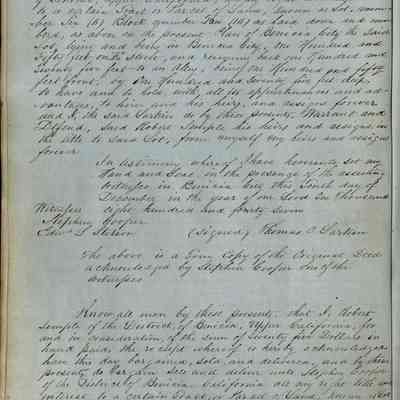 a certain Tract or Parcel of Land, known as Lot, num-
ber Six (6) Block number Ten (10) as laid down and num-
bered, as above in the present Plan of Benicia City the said
Lot, lying and being in Benicia City, One Hundred and
Fifty feet on the street, and running back one Hundred and
Twenty five feet to an alley, being One Hundred and fifty
feet front, by One Hundred and twenty five feet deep
to have and to hold, with all its appurtenances and ad-
vantages, to him and his heirs, and assigns forever
and I, the said Larkin do by these presents, Warrant and
Defend, said Robert Semple his heirs and assigns in
the title to said Lot, from myself my heirs and assigns
forever
In testimony whereof I have hereunto set my
Hand and Seal, in the presence of the assenting
Witnesses, in Benicia City this Tenth day of
December in the year of our Lord One thousand
Witnesses eight hundred and forty seven
Stephen Cooper
(Signed) Thomas O Larkin
The above is a True Copy of the Original Deed
acknowledged by Stephen Cooper one of the
Witnesses
Know all men by these presents, that I, Robert
Semple of the District of Benicia, Upper California, for
and in consideration, of the sum of Twenty five Dollars in
hand paid, the receipt whereof is hereby acknowledged
have this day bargained, sold, and delivered, and by these
presents do bargain sell and deliver unto Stephen Cooper
of the District of Benicia California all my right title and
interest to a certain Tract or Parcel of Land, known as Lot